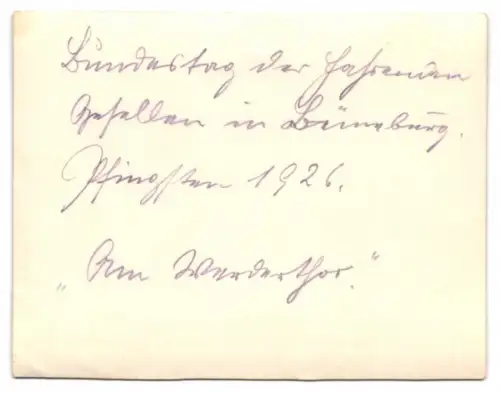 Bundestag der Fahrenden
Gesellen in Lüneburg.
Pfingsten 1926.
„Am Werderthor."